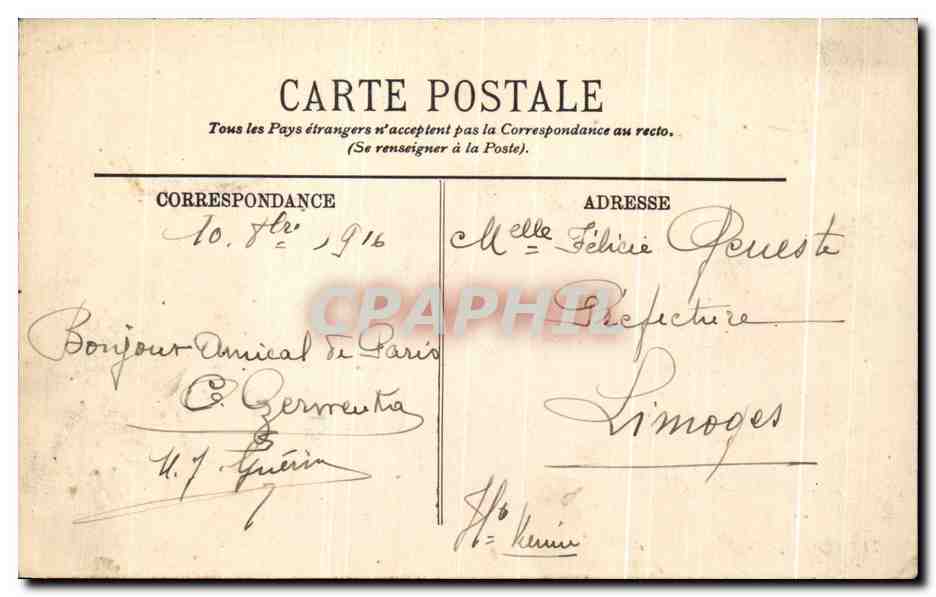 CARTE POSTALE
Tous les Pays étrangers n'acceptent pas la Correspondance au recto.
(Se renseigner à la Poste).
CORRESPONDANCE
10. 8bre 1916
Bonjour Amical de Paris
C.
M. J. Guérin
ADRESSE
Melle Félicie Geneste
Préfecture
Limoges
Hte Vienne
CPAPHIL